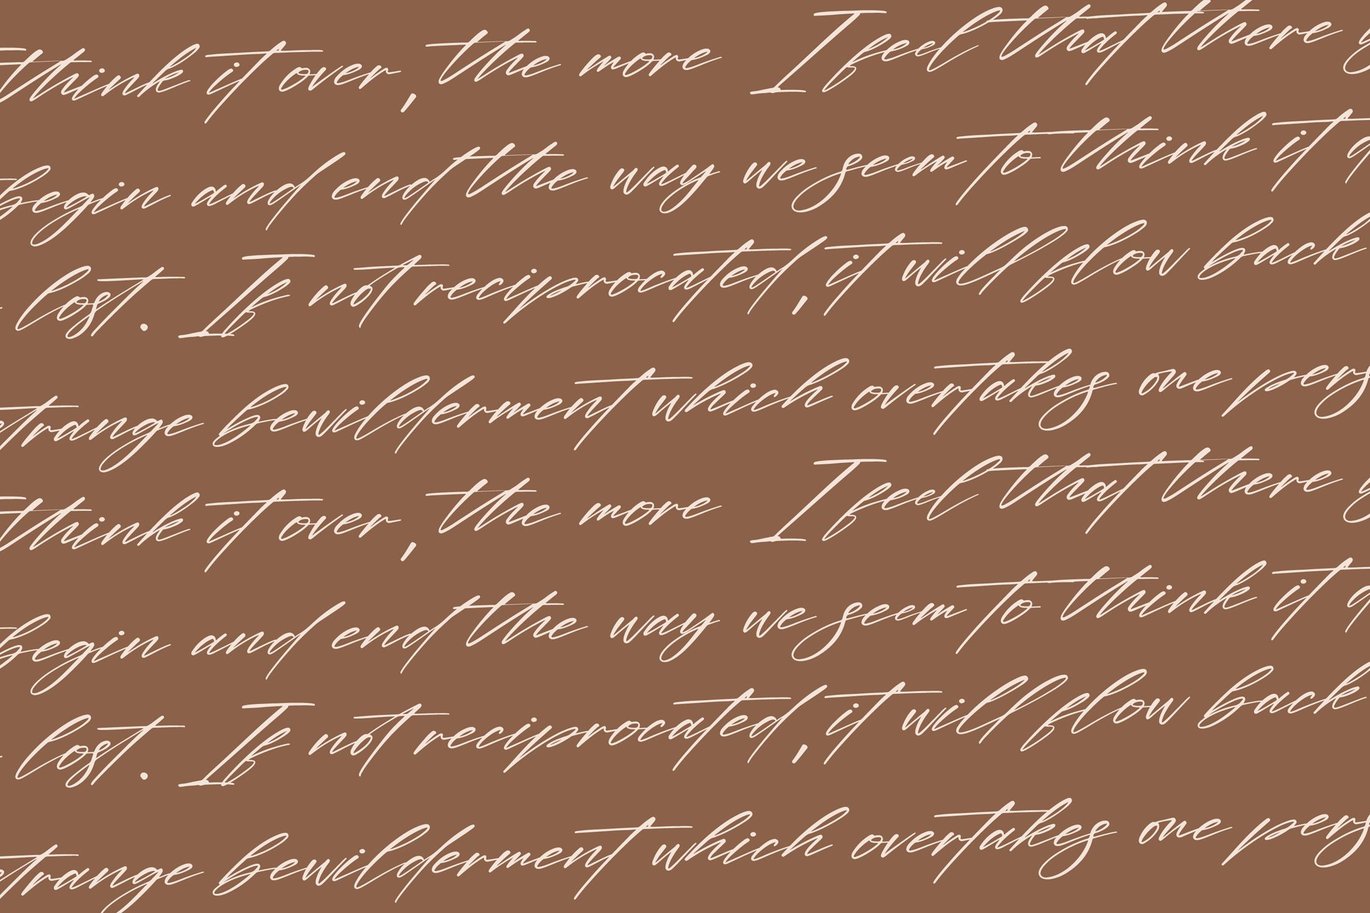 think it over, the more I feel that there
begin and end the way we seem to think it
lost. If not reciprocated, it will flow back
strange bewilderment which overtakes one pers
think it over, the more I feel that there
begin and end the way we seem to think it
lost. If not reciprocated, it will flow back
strange bewilderment which overtakes one pers